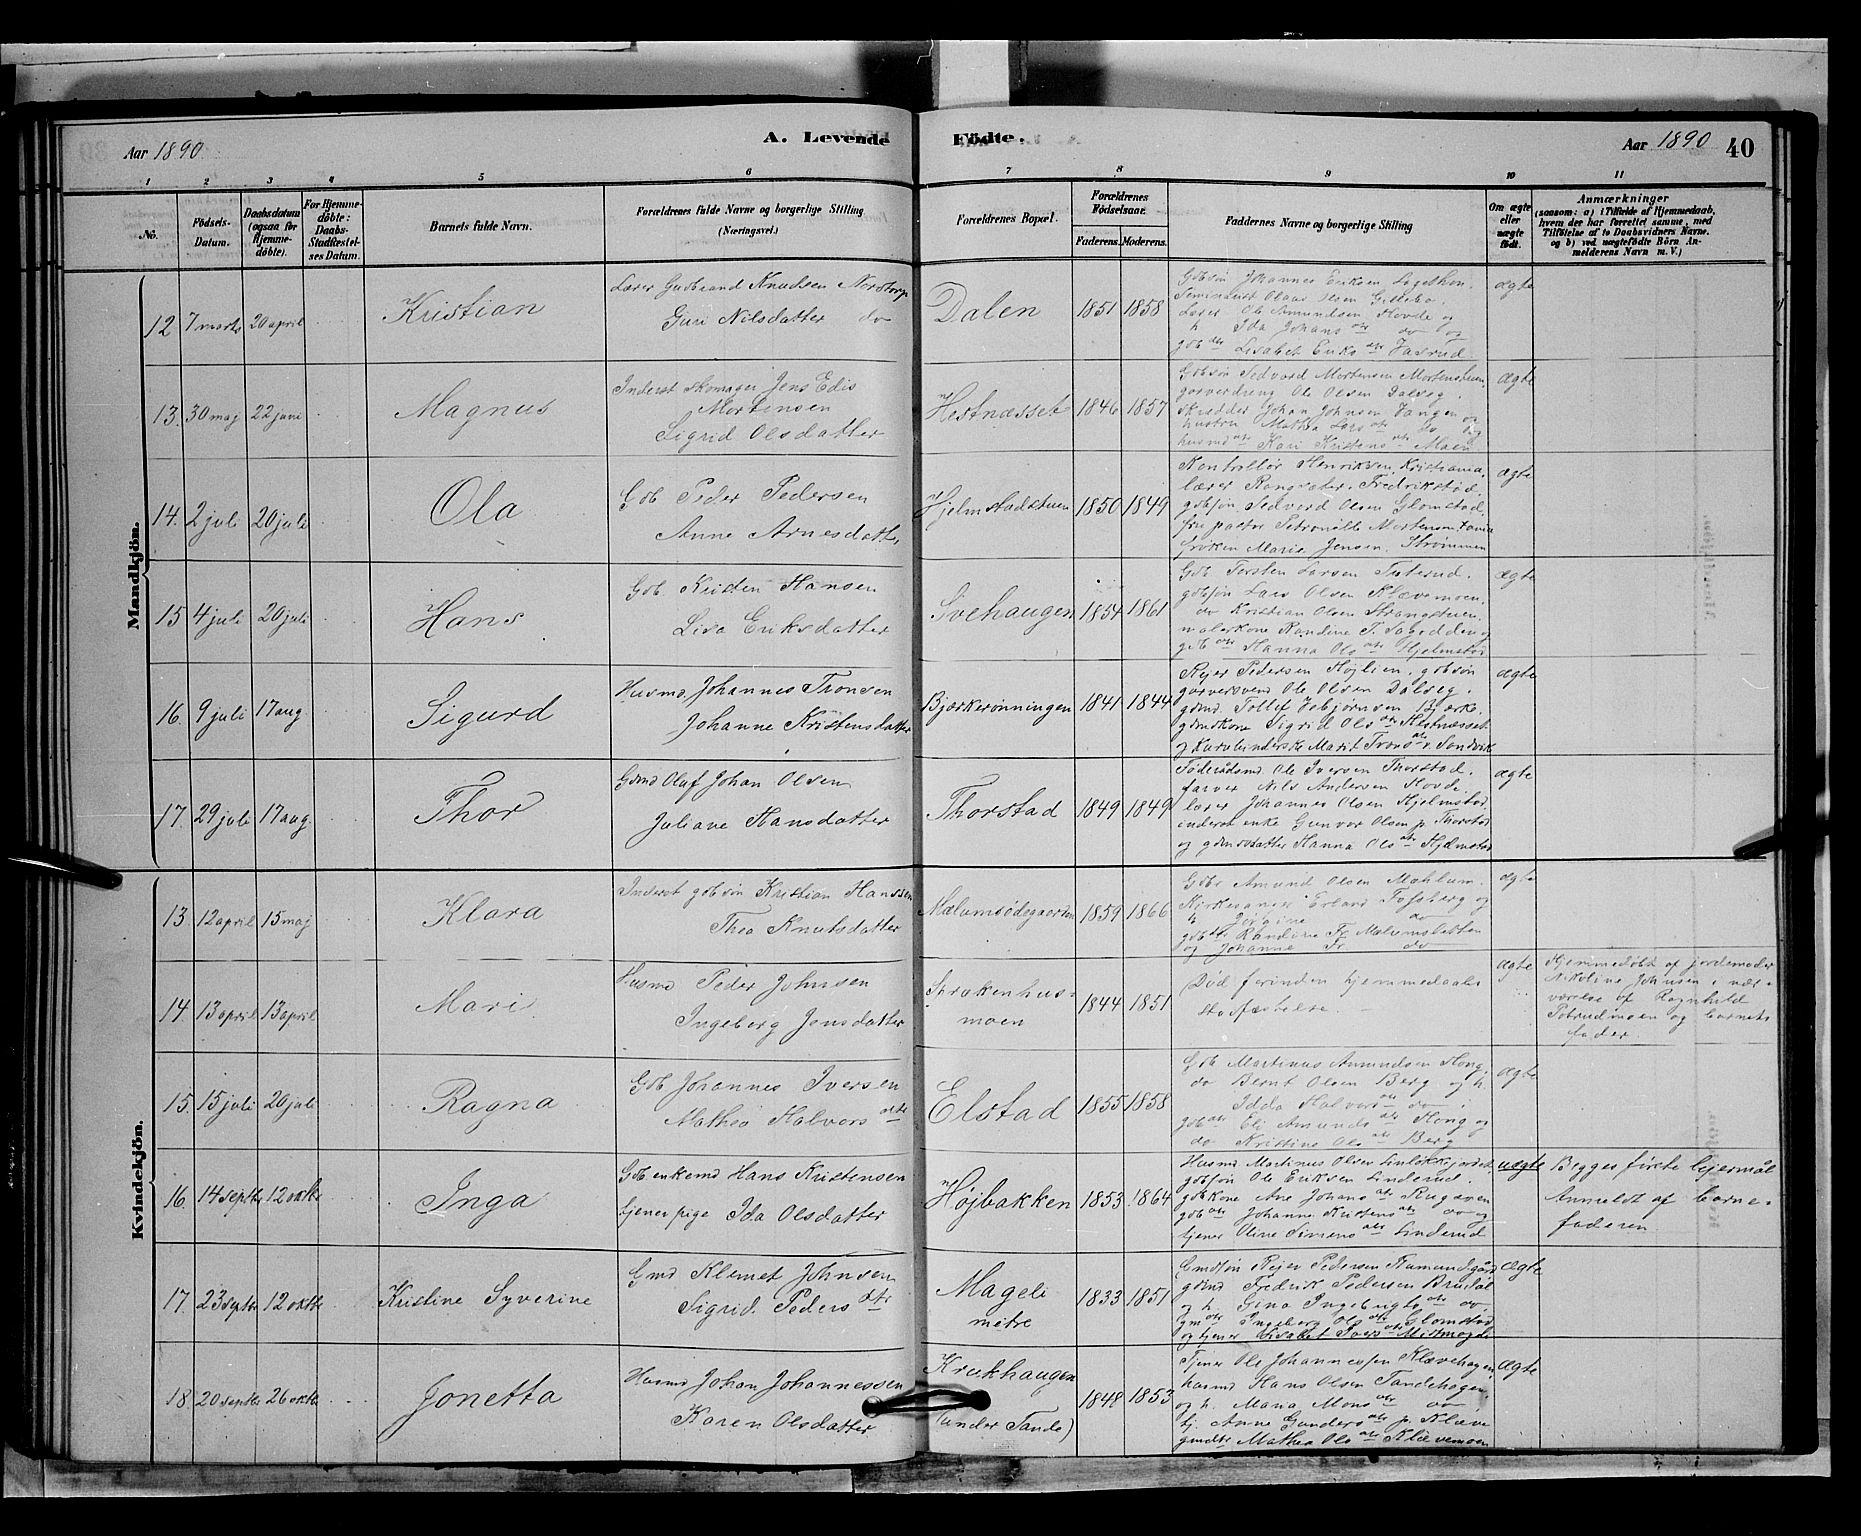 Aar 1890.
A. Levende
Födte.
Aar 1890
40
1 2 3 4 5 6
7 8 9 10 11
No.
Födsels-
Datum.
Daabsdatum
(ogsaa for
Hjemme-
döbte).
For Hjemme-
döbte:
Daabs-
Stadfæstel-
ses Datum.
Barnets fulde Navn.
Forældrenes fulde Navne og borgerlige Stilling
(Næringsvei.)
Forældrenes Bopæl.
Forældrenes
Födselsaar.
Faderens. Moderens.
Faddernes Navne og borgerlige Stilling
Om ægte
eller
uægte
födt.
Anmærkninger
(saasom: a) i Tilfælde af Hjemmedaab,
hvem der har forrettet samme, med
Tilföielse af to Daabsvidners Navne.
og b) ved uægtefödte Börn An-
melderens Navn m. V.)
Mandkjön.
12 7 marts 20 april
Kristian
Lærer Gudbrand Knudsen Norstorp
Guri Nilsdatter do
Dalen
1851 1858
Gdbsøn Johannes Eriksen
Seminarist Olaus Olsen
Lærer Ole Amundsen Hovde og
h. Ida Johans dtr do og
gdb dtr Lisabet Eriks dtr
ægte
13. 30 maj 22 juni
Magnus
Inderst skomager Jens Edis
Mortensen
Sigrid Olsdatter
Hestnæsset
1846 1857
Gdbsøn Sedvard Mortensen Mortenstuen,
garversvend Ole Olsen Dalseg.
skrædder Johan Johnsen Vangen og
hustru Mathea Lars dtr do og
husmd dtr Kari Kristens dtr Moen
ægte
14. 2 juli 20 juli
Ola
Gdb Peder Pedersen
Anne Arnesdatter
Hjelmstadstuen
1850 1849
Kontrollør Henriksen, Kristiania,
lærer Fredrikstad,
gdbsøn Sedvard Olsen Glomstad,
fru pastor Petronelle Mortensen,
frøken Marie Jensen, Strømmen
ægte
15 4 juli 20 juli
Hans
Gdb Kristen Hansen
Lisa Eriksdatter
Svehaugen
1854 1861
Gdb Torsten Larsen
gdbsøn Lars Olsen Klævemoen,
do Kristian Olsen
malerkone Randine
gdb dtr Hanna Ols dtr Hjelmstad
ægte
16. 9 juli 17 aug
Sigurd
Husmd Johannes Tronsen
Johanne Kristensdatter
Bjærkerønningen
1841 1844
Rejer Pedersen Højlien, gdbsøn
garversvend Ole Olsen Dalseg.
gdmd. Tollef Bjærke.
gdmdkone Sigrid Ols dtr Hestnæsset
og Kurvbinderske Marit Trons dtr v. Sandvik
ægte
17. 29 juli 17 aug.
Thor
Gdmd Oluf Johan Olsen
Juliane Hansdatter
Thorstad
1849 1849
Føderådsmd. Ole Iversen Thorstad.
farver Nils Andersen Hovde.
lærer Johannes Olsen Hjelmstad,
inderst enke Gunvor Olsen p. Thorstad
og gdmdsdatter Hanna Ols dtr Hjelmstad
ægte
Kvindekjön.
13. 12 april 15 maj
Klara
Inderst gdbsøn Kristian Hanssen
Thea Knutsdatter
Mælumsødegaarden
1859 1866
Gdbr Amund Olsen Mæhlum.
Kirkesanger Erland Fossberg og
h. Jørgine do
gdb dtr Randine Fr.
og Johanne Fr. do
ægte
14. 13 april 13 april
Mari
Husmd Peder Johnsen
Ingeborg Jonsdatter
Sprakenhus-
moen
1844 1851
Død forinden hjemmedaabs
stadfæstelse.
ægte
Hjemmedøbt af jordemoder
Nikoline Johnsen i nær-
værelse af Ragnhild
og barnets
fader.
15. 15 juli 20 juli
Ragna
Gdb Johannes Iversen
Mathea Halvors dtr
Elstad
1855 1858
Gdb Martinus Amundsen Hong,
do Bernt Olsen Berg og h.
Idda Halvors dtr do
gdb dtr Eli Amunds dtr Hong og
do Kristine Ols dtr Berg
ægte
16. 14 septbr 12 oktbr
Inga
Gdb enkemd Hans Kristensen
tjenerpige Ida Olsdatter
Højbakken
1853. 1864
Husmd Martinus Olsen
gdbsøn Ole Eriksen Linderud.
gdbkone Ane Johans dtr Rugsveen
gdb dtr Johanne Kristens dtr do og
tjener Oline Simens dtr Linderud
uægte
Begges første lejermål
Anmeldt af barne-
faderen.
17. 23 septbr 12 oktbr
Kristine Syverine
Gmd Klemet Johnsen
Sigrid Peders dtr
Mageli
métre
1833 1851
Gmdsøn Rejer Pedersen
gdmd. Fredrik Pedersen
og h. Gina Ingebrigts dtr do.
gm dtr Ingeborg Ols dtr Glomstad
og tjener Lisabet Ivers dtr
Ægte
18. 20 septbr 26 oktbr
Jonetta
Husmd Johan Johannessen
Karen Olsdatter
Krukhaugen
(under Tande)
1848 1853
Tjener Ole Johannessen Klævehagen,
husmd Hans Olsen Tandehagen,
og h. Maria Mons dtr do,
tj. Anne Gunders dtr p. Klæve
gmdtr Mathea Ols dtr Klævemoen
Ægte